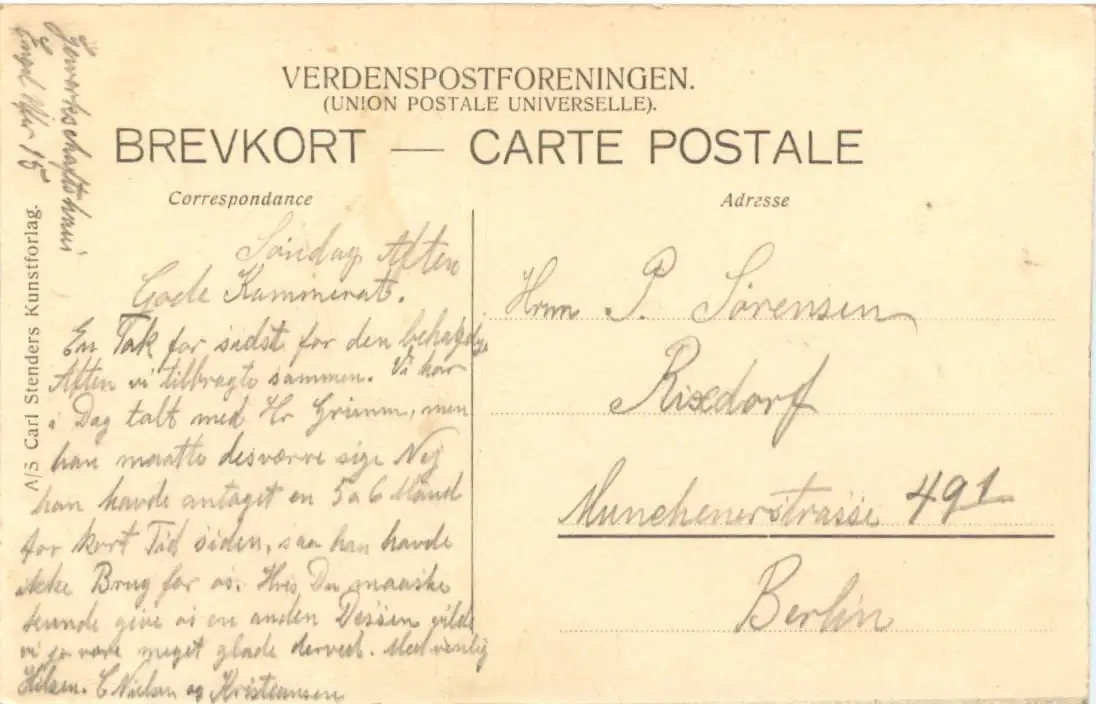 VERDENSPOSTFORENINGEN.
(UNION POSTALE UNIVERSELLE).
BREVKORT — CARTE POSTALE
Correspondance
Adresse
Søndag Aften
Gode Kammerat.
En Tak for sidst for den behaglige
Aften vi tilbragte sammen. Vi har
i Dag talt med Hr Grimm, men
han maatte desværre sige Nej
han havde antaget en 5 a 6 Mand
for kort Tid siden, saa han havde
ikke Brug for os. Hvis Du maaske
kunde give os en anden Dessein vilde
vi jo være meget glade derved. Med venlig
Hilsen. C Nielsen og Kristiansen
Hrnn P. Sørensen
Rixdorf
Munchenerstrasse 49 1
Berlin
Gewerkschaftshaus
15
A/S Carl Stenders Kunstforlag.